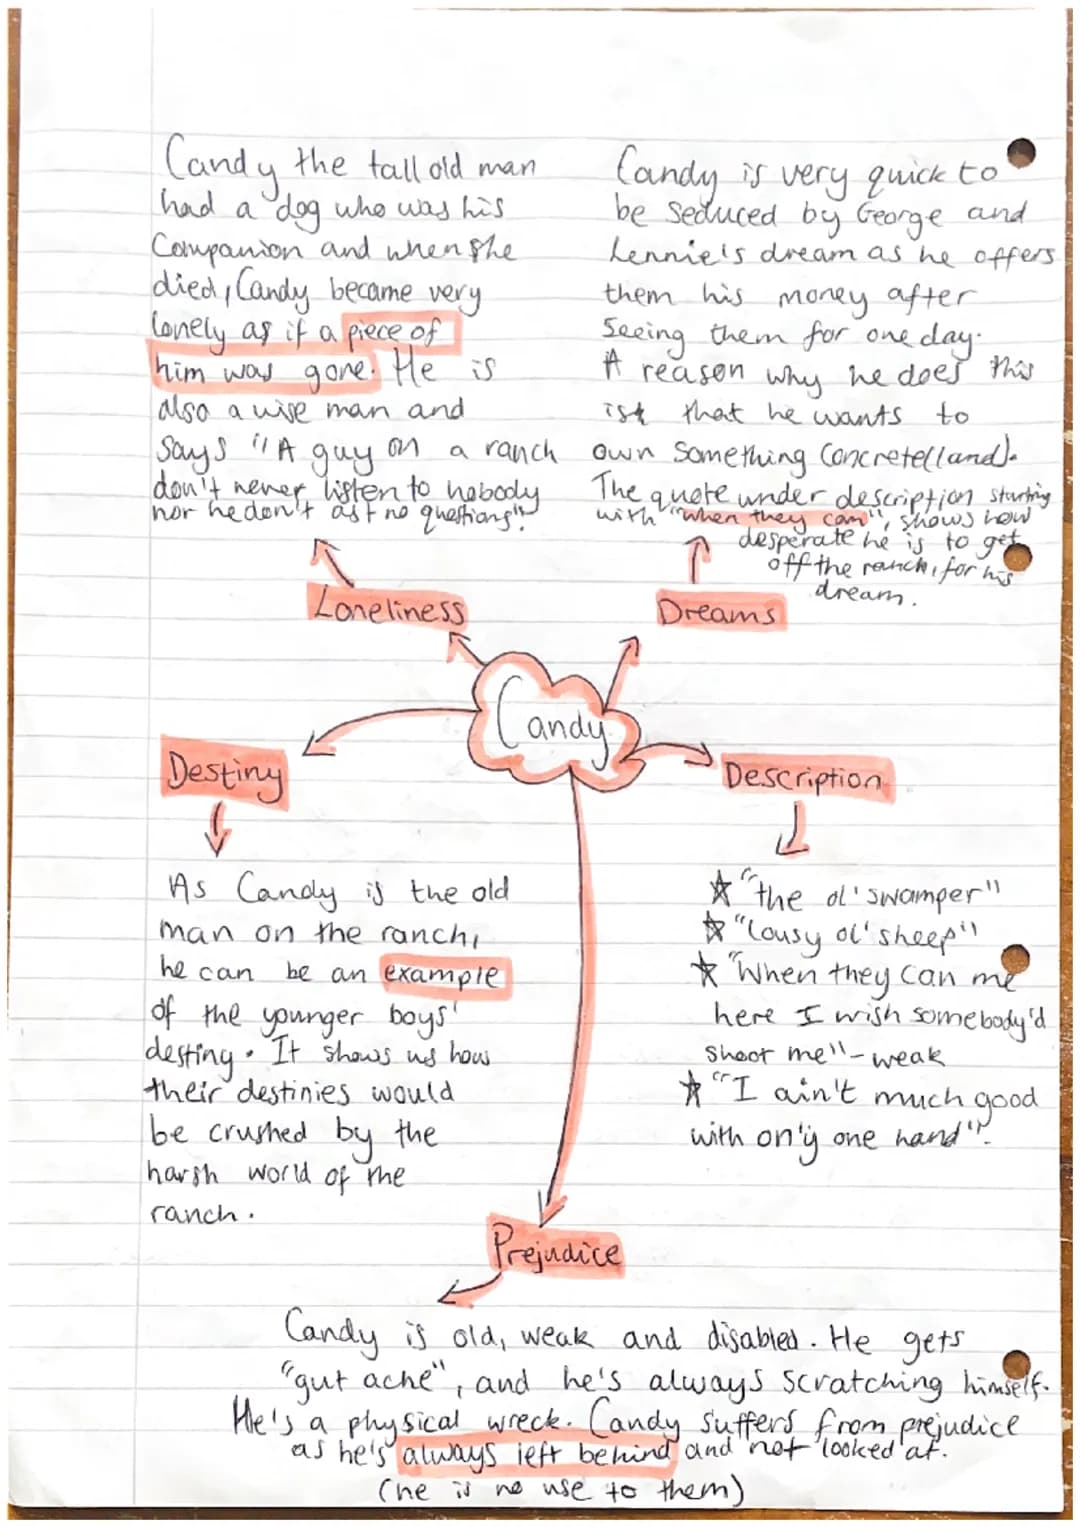 Candy the tall old man
had a dog who was his
Companion and when she
died, Candy became very
lonely as if a piece of
him was gone. He is
also a wise man and
says "A guy on a ranch
don't never listen to nobody
nor he don't ast no questions".
Loneliness
Candy is very quick to
be seduced by George and
Lennie's dream as he offers
them his money after
seeing them for one day.
A reason why he does this
is that he wants to
own something concrete (land).
The quote under description starting
with "when they can", shows how
desperate he is to get
off the ranch, for his
dream.
Dreams
Candy
Destiny
As Candy is the old
man on the ranch,
he can be an example
of the younger boys'
destiny. It shows us how
their destinies would
be crushed by the
harsh world of the
ranch.
Description
"the ol' swamper"
"lousy ol' sheep"
"When they can me
here I wish somebody'd
shoot me" - weak
"I ain't much good
with on'y one hand".
Prejudice
Candy is old, weak and disabled. He gets
"gut ache", and he's always scratching himself.
He's a physical wreck. Candy suffers from prejudice
as he's always left behind and not looked at.
(he is no use to them)